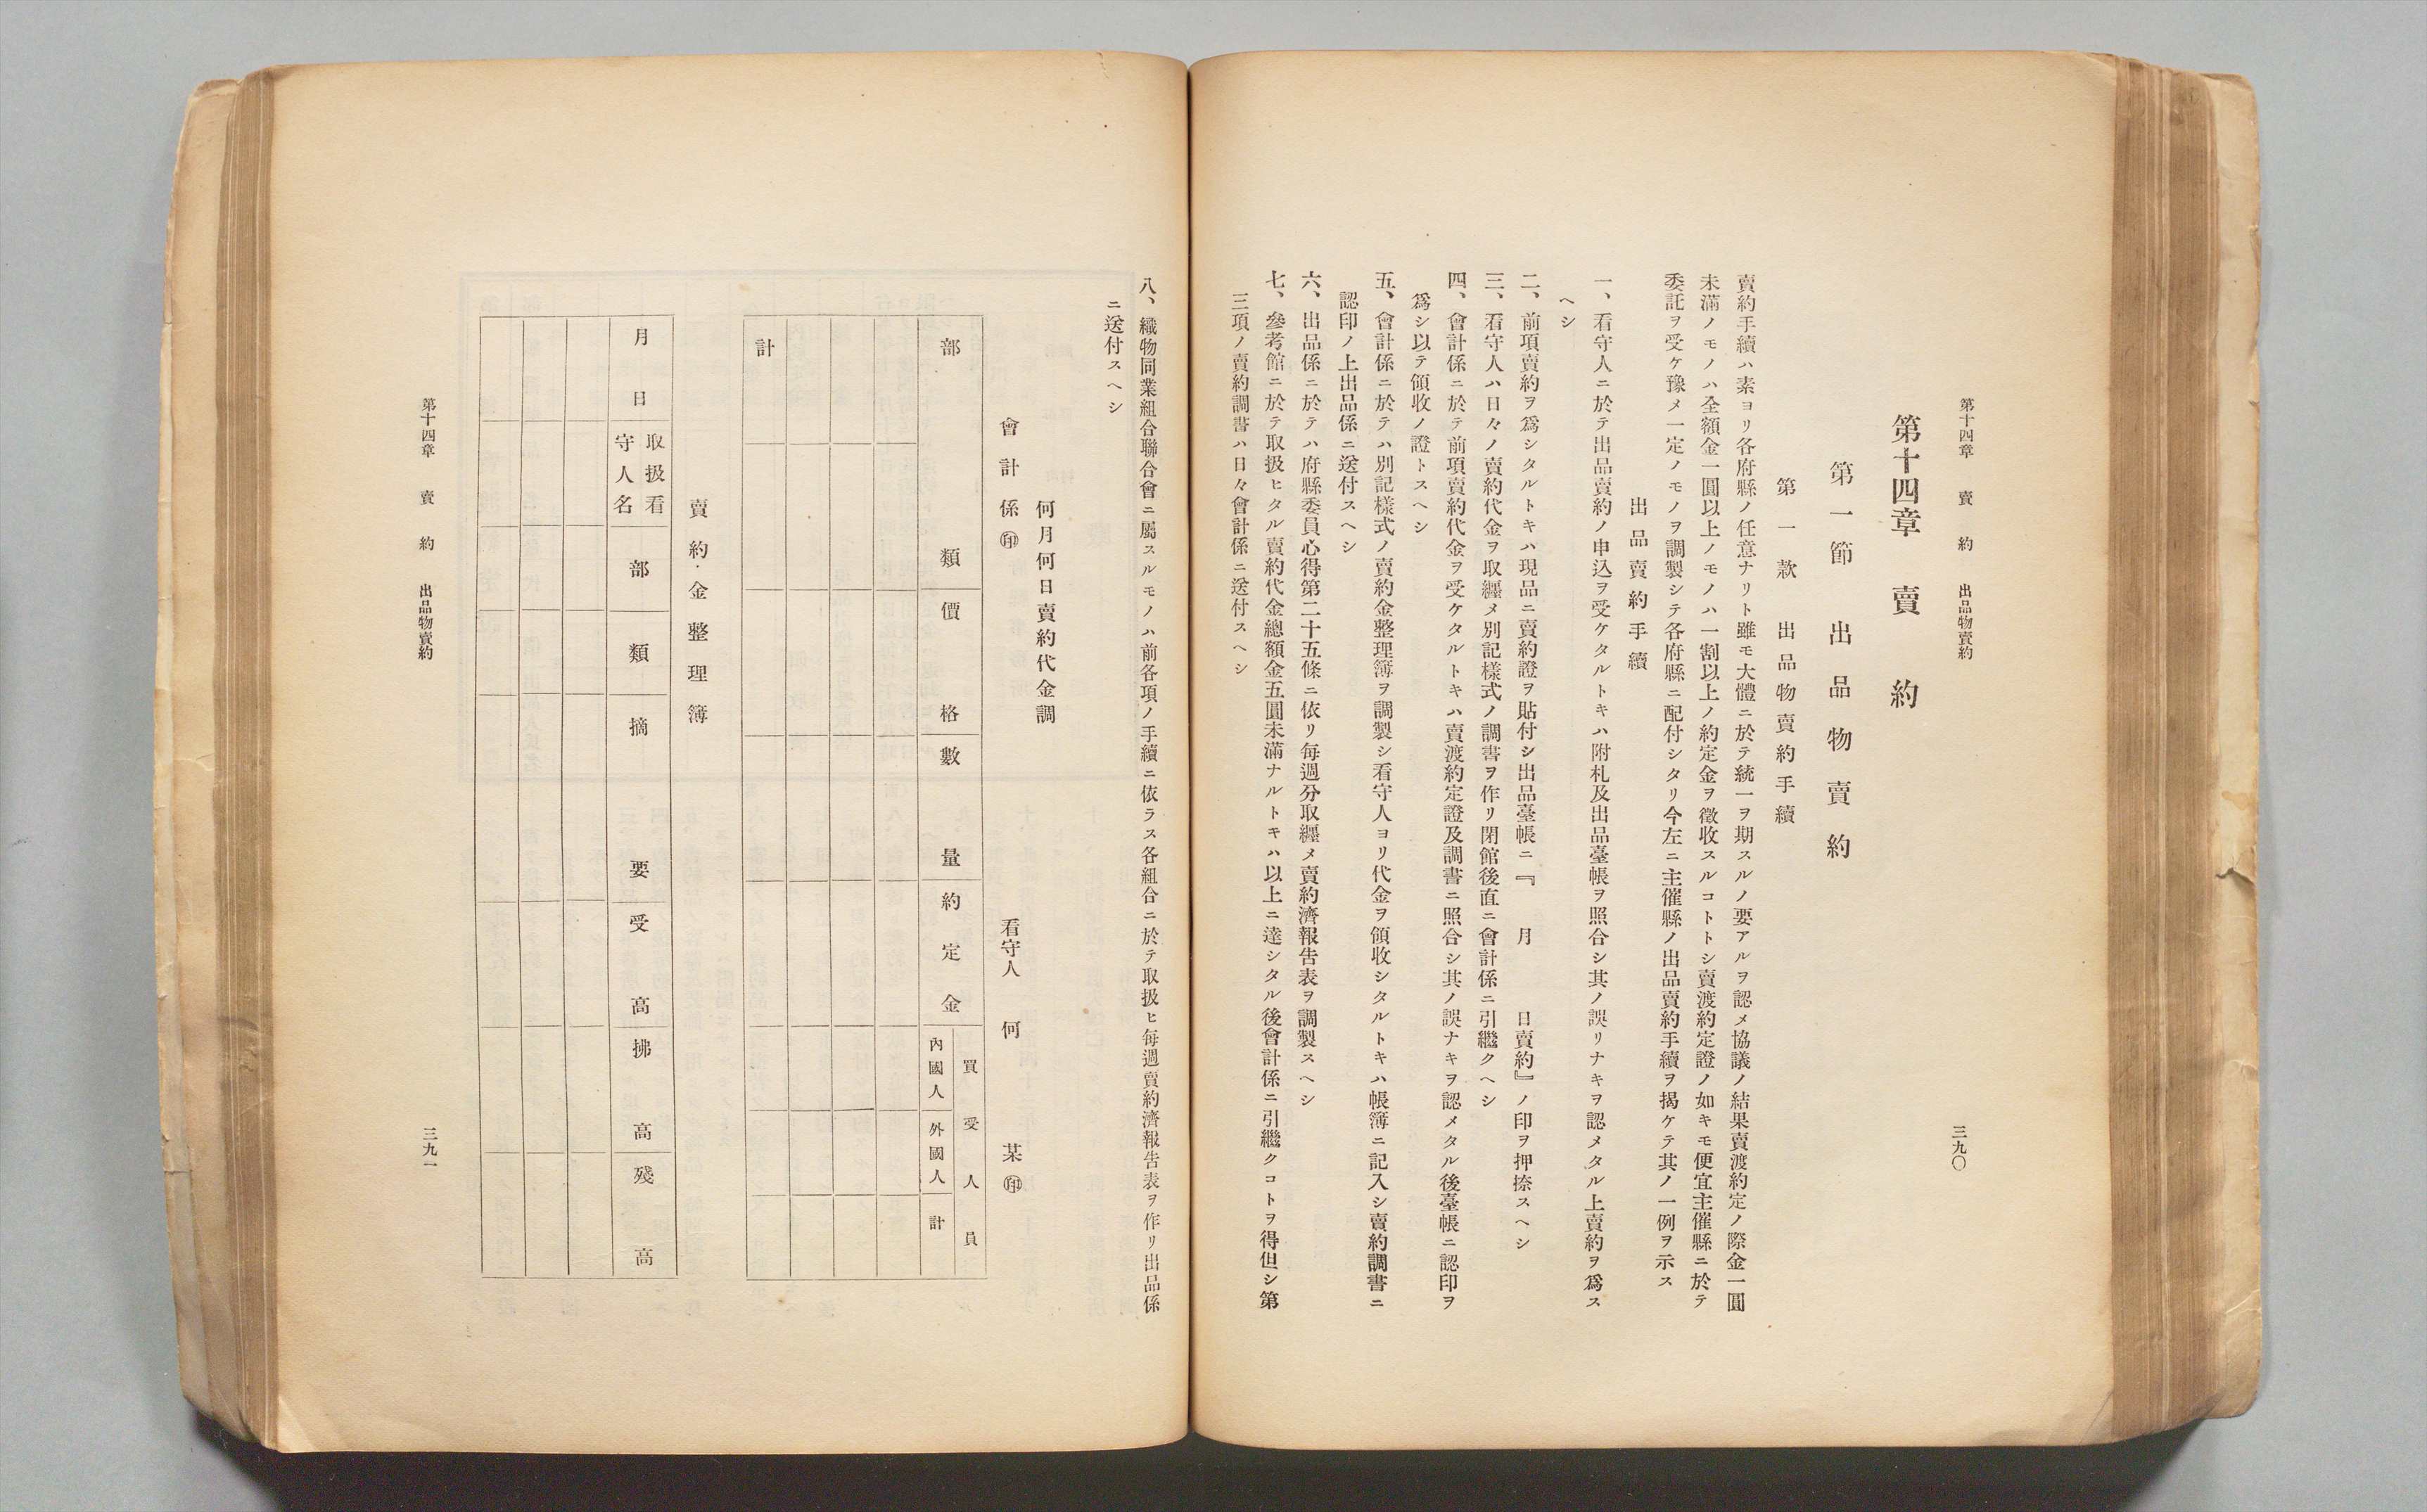 第十四章　賣　約　出品物賣約
三九〇
第十四章　賣　約
第一節　出品物賣約
第一款　出品物賣約手續
賣約手續ハ素ヨリ各府縣ノ任意ナリト雖モ大體ニ於テ統一ヲ期スルノ要アルヲ認メ協議ノ結果賣渡約定ノ際金一圓
未滿ノモノハ全額金一圓以上ノモノハ一割以上ノ約定金ヲ徵收スルコトトシ賣渡約定證ノ如キモ便宜主催縣ニ於テ
委託ヲ受ケ豫メ一定ノモノヲ調製シテ各府縣ニ配付シタリ今左ニ主催縣ノ出品賣約手續ヲ揭ケテ其ノ一例ヲ示ス
出品賣約手續
一、看守人ニ於テ出品賣約ノ申込ヲ受ケタルトキハ附札及出品臺帳ヲ照合シ其ノ誤リナキヲ認メタル上賣約ヲ爲ス
ヘシ
二、前項賣約ヲ爲シタルトキハ現品ニ賣約證ヲ貼付シ出品臺帳ニ『　月　日賣約』ノ印ヲ押捺スヘシ
三、看守人ハ日々ノ賣約代金ヲ取纒メ別記樣式ノ調書ヲ作リ閉館後直ニ會計係ニ引繼クヘシ
四、會計係ニ於テ前項賣約代金ヲ受ケタルトキハ賣渡約定證及調書ニ照合シ其ノ誤ナキヲ認メタル後臺帳ニ認印ヲ
爲シ以テ領收ノ證トスヘシ
五、會計係ニ於テハ別記樣式ノ賣約金整理簿ヲ調製シ看守人ヨリ代金ヲ領收シタルトキハ帳簿ニ記入シ賣約調書ニ
認印ノ上出品係ニ送付スヘシ
六、出品係ニ於テハ府縣委員心得第二十五條ニ依リ每週分取纒メ賣約濟報告表ヲ調製スヘシ
七、參考館ニ於テ取扱ヒタル賣約代金總額金五圓未滿ナルトキハ以上ニ達シタル後會計係ニ引繼クコトヲ得但シ第
三項ノ賣約調書ハ日々會計係ニ送付スヘシ
八、織物同業組合聯合會ニ屬スルモノハ前各項ノ手續ニ依ラス各組合ニ於テ取扱ヒ每週賣約濟報告表ヲ作リ出品係
ニ送付スヘシ
何月何日賣約代金調
會計係㊞　看守人　何　某㊞
部　類　價格　數量　約定金　買受人員
內國人　外國人　計
計
賣約金整理簿
月日　取扱看守人名　部　類　摘要　受高　拂高　殘高
第十四章　賣　約　出品物賣約
三九一